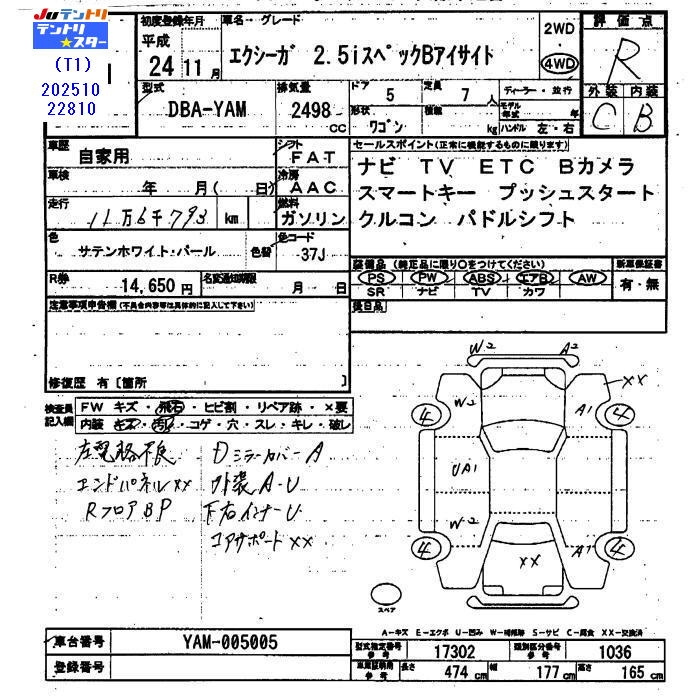 JUテントリ
テントリ
★スター
(T1)
202510
22810
初度登録年月
平成
24 11 月
車名・グレード
エクシーガ 2.5iスペックBアイサイト
2WD
4WD
評価点
R
外装 内装
C B
型式
DBA-YAM
排気量
2498
CC
ドア
5
定員
7 人
形状
ワゴン
積載
kg
ディーラー・並行
モデル年式 年
ハンドル 左・右
車歴
自家用
シフト
FAT
車検
年 月(日)
冷房
AAC
走行
11万6千793 km
燃料
ガソリン
色
サテンホワイト・パール
色替
色コード
37J
R券
14,650円
名変通知期限
月 日
セールスポイント(正常に機能するものに限ります)
ナビ TV ETC Bカメラ
スマートキー プッシュスタート
クルコン パドルシフト
装備品 (純正品に限り○をつけてください)
新車保証書
PS PW ABS エアB AW
SR ナビ TV カワ
有・無
後日品
注意事項申告欄(不具合内容等は具体的に記入して下さい)
修復歴 有〔箇所 〕
検査員記入欄
FW キズ・飛石・ヒビ割・リペア跡・×要
内装 キズ・汚・コゲ・穴・スレ・キレ・破レ
エンドパネルXX
RフロアBP
DミラーカバーA
外装A-U
下右インナーU
コアサポートXX
W2 A2
XX
W2 A1
4 4
UA1
W2 A1
4 4
XX
スペア
A-キズ E-エクボ U-凹み W-補修跡 S-サビ C-腐食 XX-交換済
車台番号
YAM-005005
登録番号
型式指定番号 参考
17302
類別区分番号 参考
1036
車車証明用 参考
長さ 474 cm 幅 177 cm 高さ 165 cm